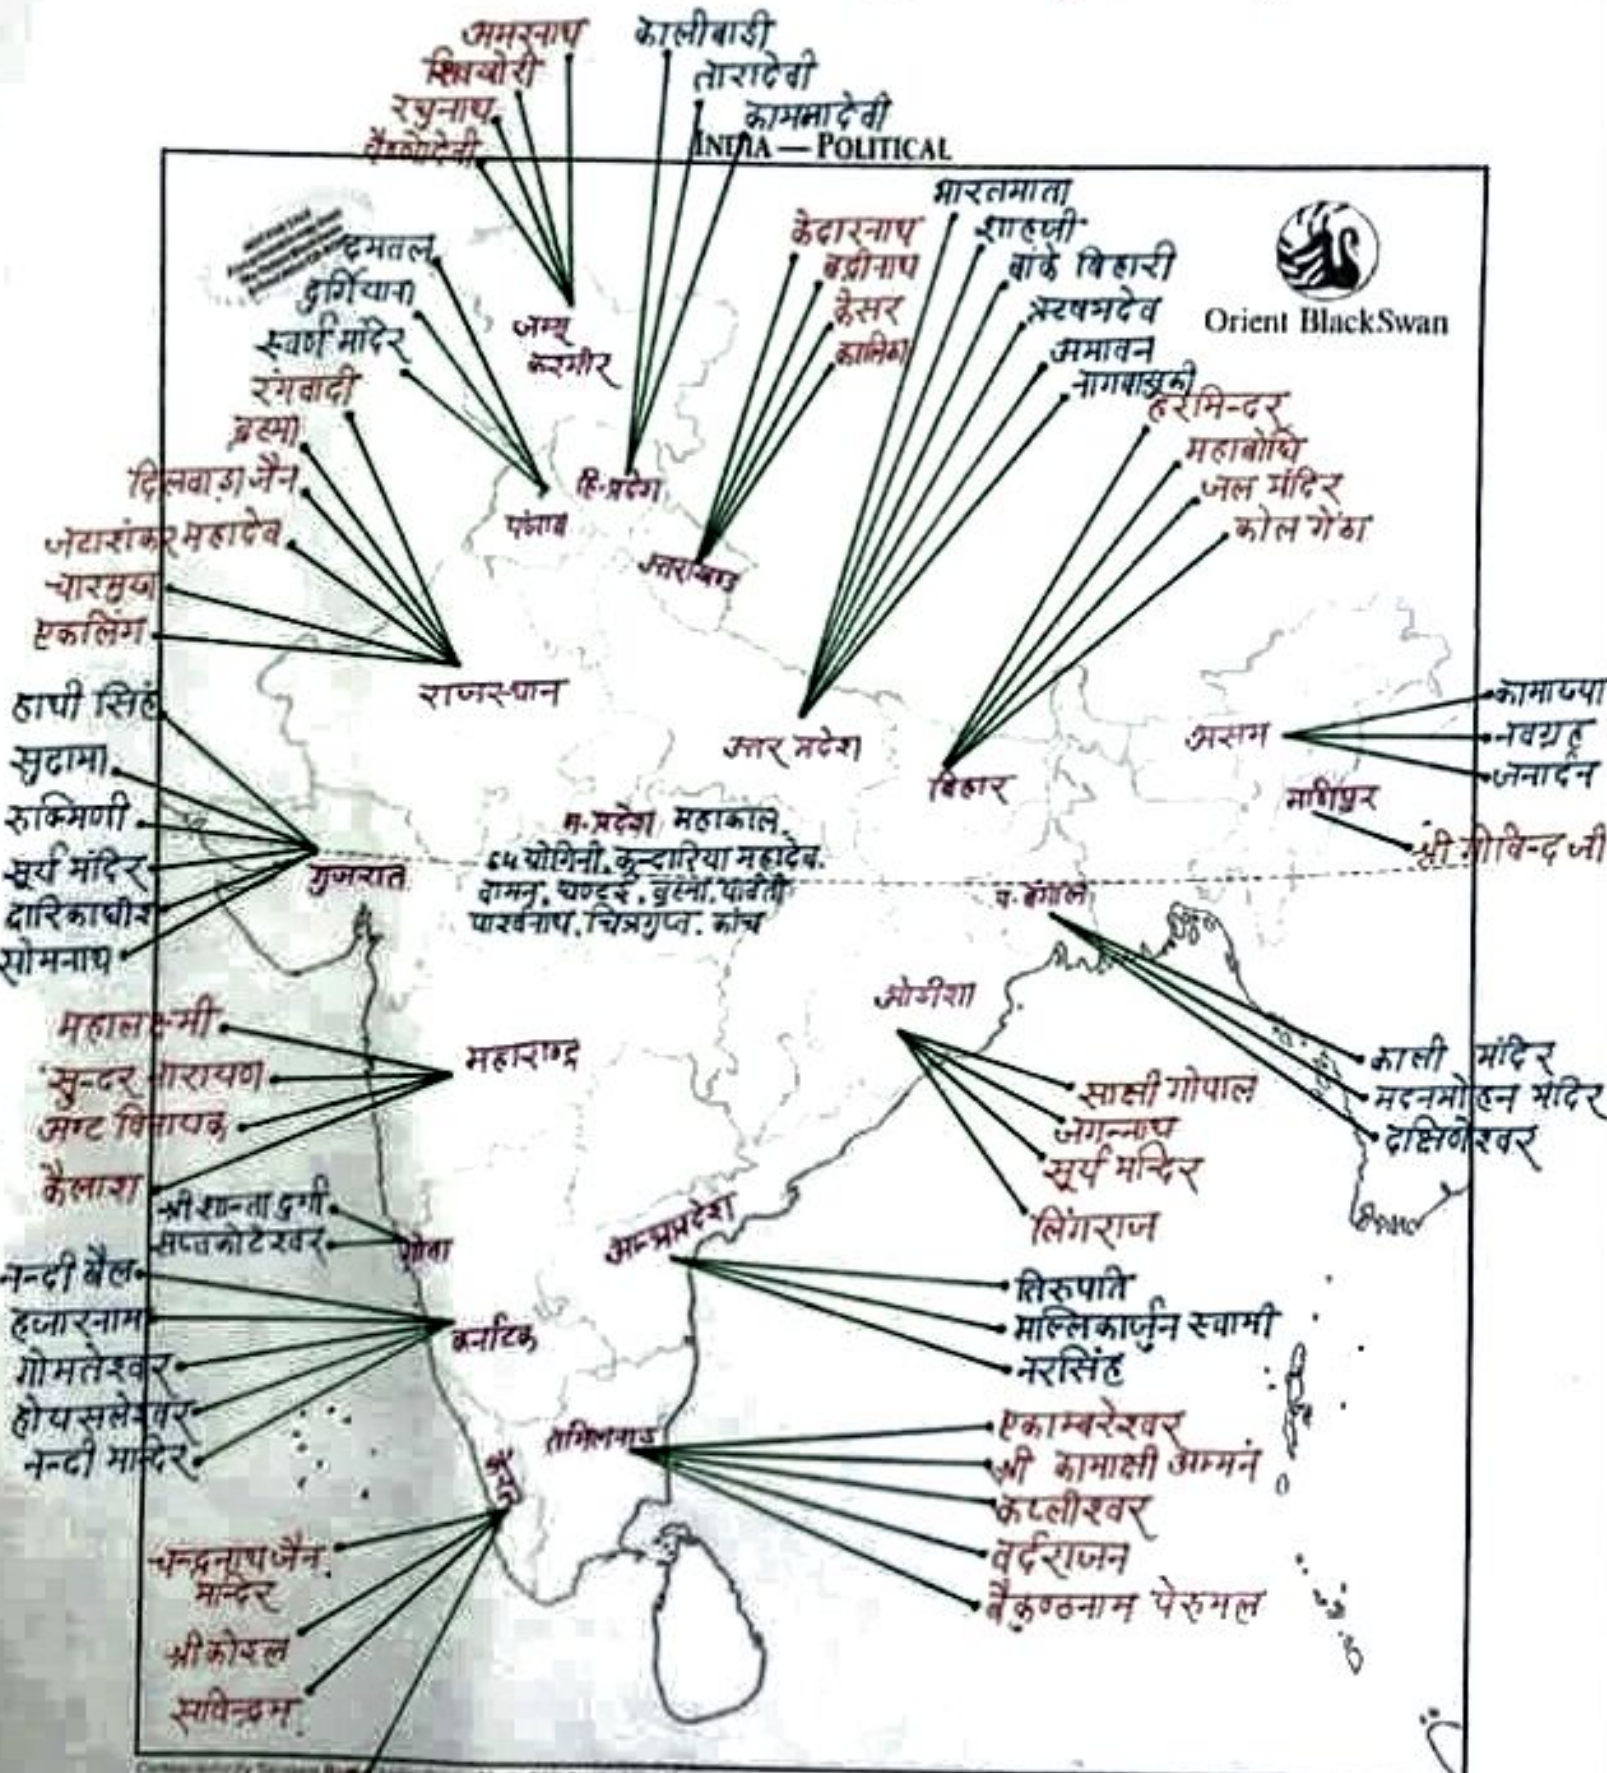 अमरनाथ
शिवखोरी
रघुनाथ
वैष्णोदेवी
कालीबाडी
तारादेवी
कामनादेवी
INDIA — POLITICAL
Orient BlackSwan
दमतल
दुर्गियाना
स्वर्ण मंदिर
जम्मू
कश्मीर
केदारनाथ
बद्रीनाथ
केसर
कालिका
भारतमाता
शाहजी
बांके बिहारी
ऋषभदेव
अमावन
नागवासुकी
हरमिन्दर
महाबोधि
जल मंदिर
कोल गेठा
रंगवादी
ब्रह्मा
दिलवाड़ा जैन
जटाशंकर महादेव
चारमुखा
एकलिंग
पंजाब
हि-प्रदेश
उत्तराखण्ड
राजस्थान
उत्तर प्रदेश
बिहार
असम
कामाख्या
नवग्रह
जनार्दन
मणिपुर
श्री गोविन्द जी
हाथी सिंह
सुदामा
रुक्मिणी
सूर्य मंदिर
दारिकाधीश
सोमनाथ
गुजरात
म-प्रदेश महाकाल,
64 योगिनी, कून्दारिया महादेव,
वामन, घण्टई, ब्रह्मा, पार्वती
पारर्वनाथ, चित्रगुप्त, कांच
प. बंगाल
काली मंदिर
मदनमोहन मंदिर
दक्षिणेश्वर
ओडीशा
साक्षी गोपाल
जगन्नाथ
सूर्य मन्दिर
लिंगराज
महालक्ष्मी
सुन्दर नारायण
अष्ट विनायक
कैलाश
महाराष्ट्र
श्री शान्ता दुर्गा
सप्तकोटेश्वर
गोवा
नन्दी बैल
हजारनाम
गोमतेश्वर
होयसलेश्वर
नन्दी मान्दिर
कर्नाटक
आन्ध्रप्रदेश
तिरुपति
मल्लिकार्जुन स्वामी
नरसिंह
तमिलनाडु
एकाम्बरेश्वर
श्री कामाक्षी अम्मनं
कप्लीश्वर
वर्दराजन
बैकुण्ठनाम पेरुमल
केरल
चन्द्रनाथ जैन
मान्दिर
श्रीकोरल
सचिन्द्रम